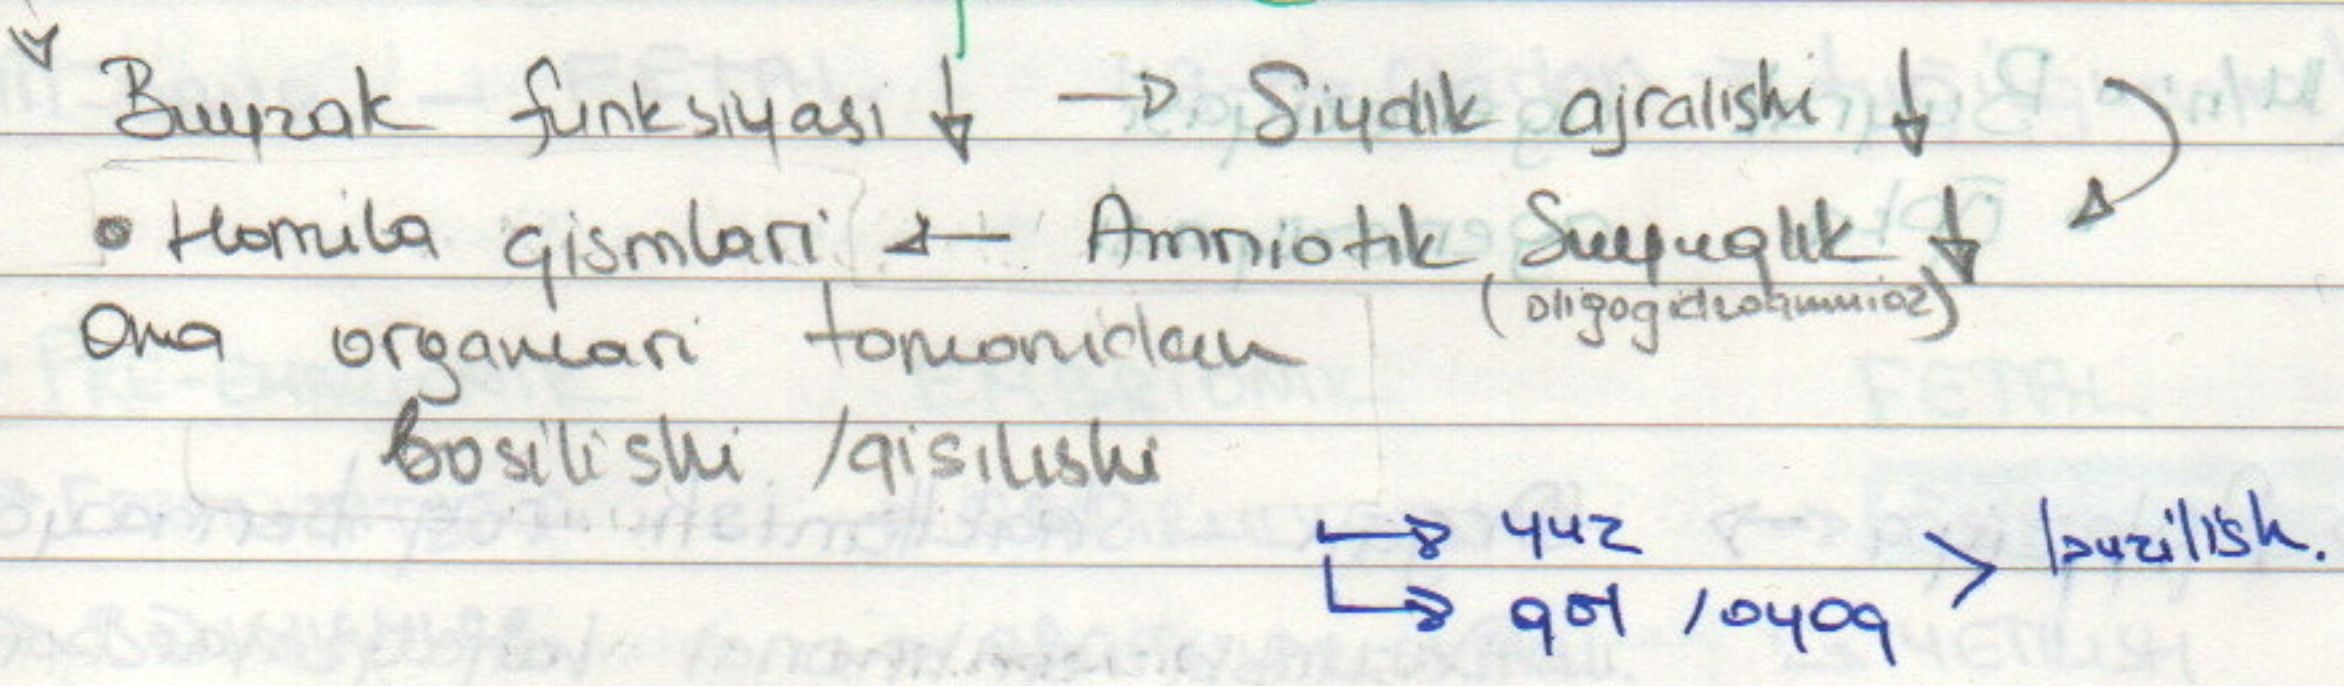 Buyrak funksiyasi ↓ → Siydik ajralishi ↓
• Homila qismlari ← Amniotik Suyuqlik ↓
(oligogidroamnioz)
Ona organlari tomonidan
bosilishi /qisilishi
→ yuz > buzilish.
→ qo'l /oyoq